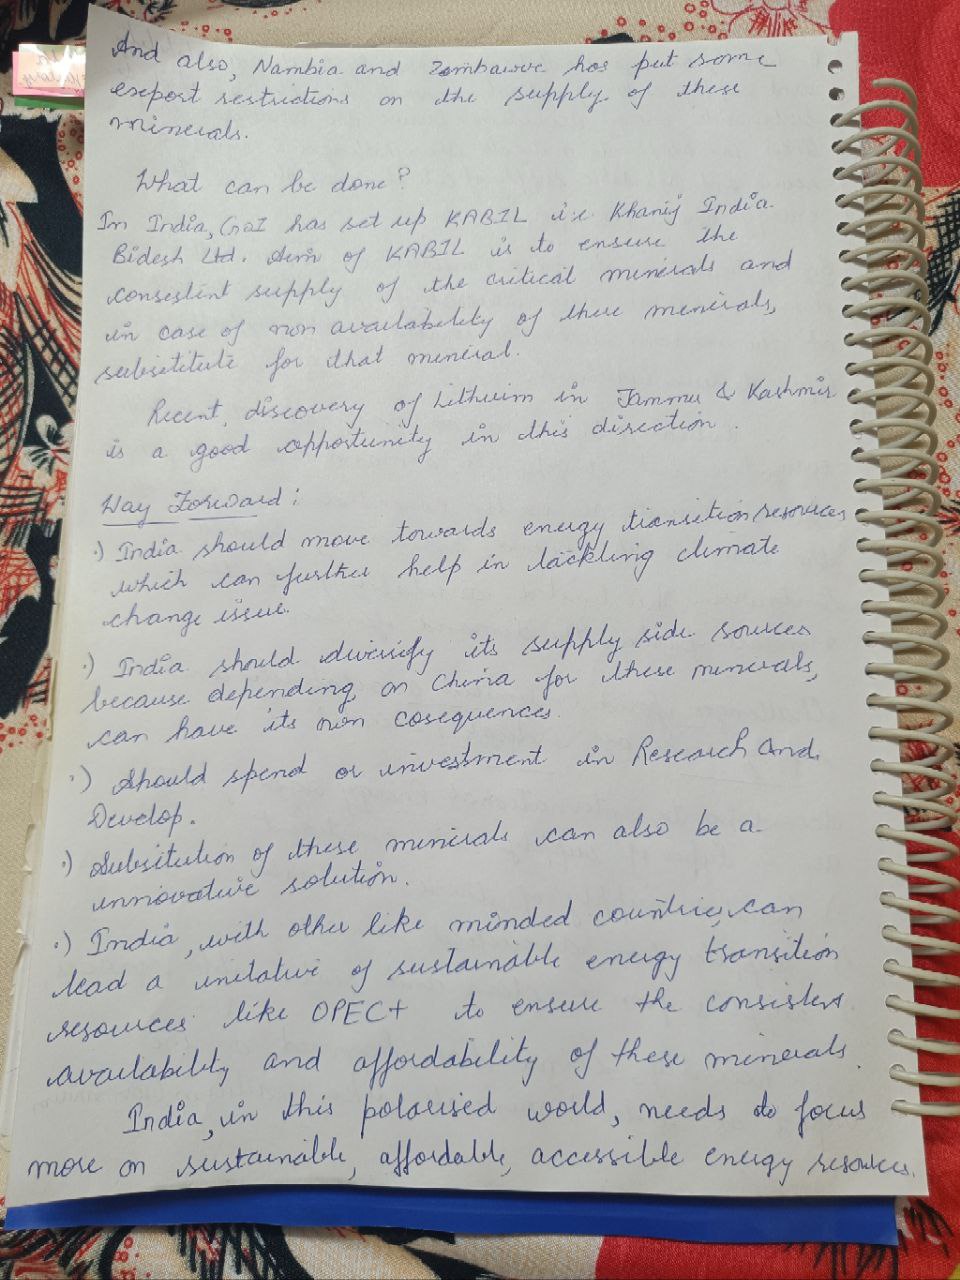 And also, Nambia and Zombawve has put some
export restrictions on the supply of these
minerals.
What can be done?
In India, GoI has set up KABIL i.e Khanij India
Bidesh Ltd. Aim of KABIL is to ensure the
consestint supply of the critical minerals and
in case of non availability of these minerals,
subsititute for that mineral.
Recent discovery of Lithuim in Jammu & Kashmir
is a good opportunity in this direction.
Way Forward :
·) India should move towards energy transition resources
which can further help in tackling climate
change issue.
·) India should diversify its supply side sources
because depending on China for these minerals,
can have its non cosequences.
·) Should spend or investment in Research and
Develop.
·) Subsitution of these minerals can also be a
innovative solution.
·) India, with other like minded countries, can
lead a initative of sustainable energy transition
resources like OPEC+ to ensure the consistent
availability and affordability of these minerals.
India, in this polarised world, needs to focus
more on sustainable, affordable, accessible energy resources.